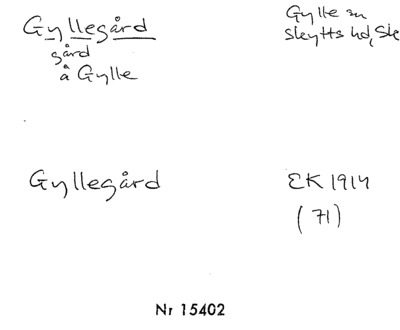 Gyllegård
gård
å Gylle
Gylle sn
Skytts hd, Sk
Gyllegård
EK 1914
(71)
Nr 15402